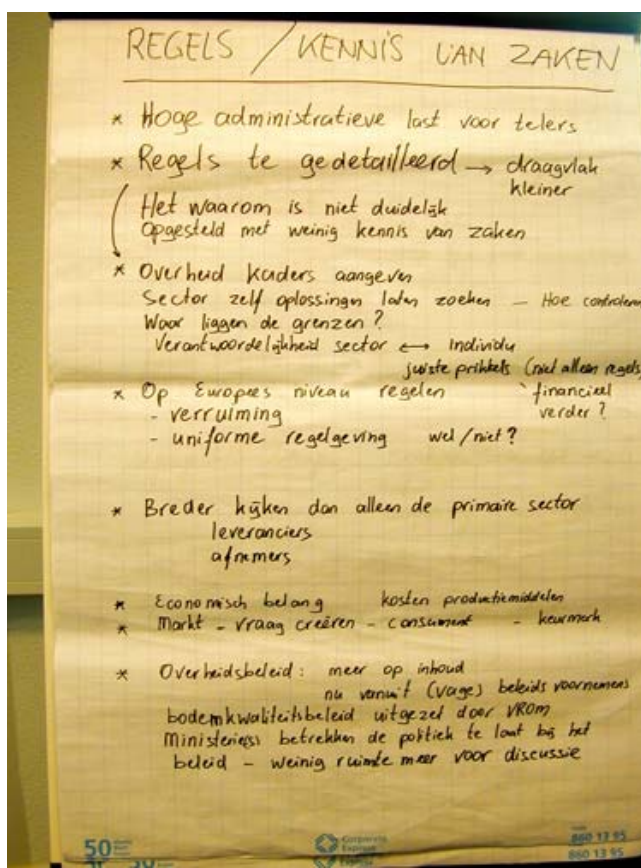 REGELS / KENNIS VAN ZAKEN
* Hoge administratieve last voor telers
* Regels te gedetailleerd → draagvlak
kleiner
Het waarom is niet duidelijk
Opgesteld met weinig kennis van zaken
* Overheid kaders aangeven
Sector zelf oplossingen laten zoeken - Hoe controleren
Waar liggen de grenzen?
Verantwoordelijkheid sector ↔ individu
juiste prikkels (niet alleen regels)
* Op Europees niveau regelen financieel
- verruiming verder?
- uniforme regelgeving wel/niet?
* Breder kijken dan alleen de primaire sector
leveranciers
afnemers
* Economisch belang kosten productiemiddelen
* Markt - vraag creëren - consument - keurmerk
* Overheidsbeleid: meer op inhoud
nu vanuit (vage) beleidsvoornemens
bodemkwaliteitsbeleid uitgezet door VROM
Ministerie(s) betrekken de politiek te laat bij het
beleid - weinig ruimte meer voor discussie
50
Corporate
Express
860 13 95
50
Express
860 13 95